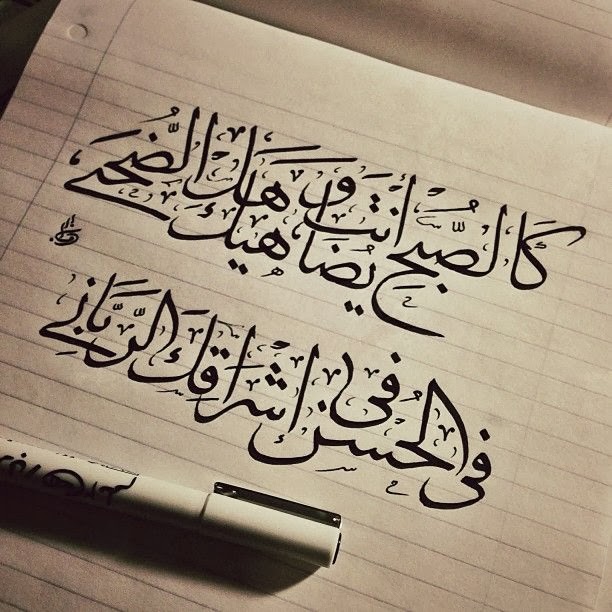 كَالصُّبحِ أنْتَ وَهَلْ يُضَاهِيكَ الضُّحَى
فى الحُسْنِ فى إشْرَاقِكَ الرَّبَّانِي